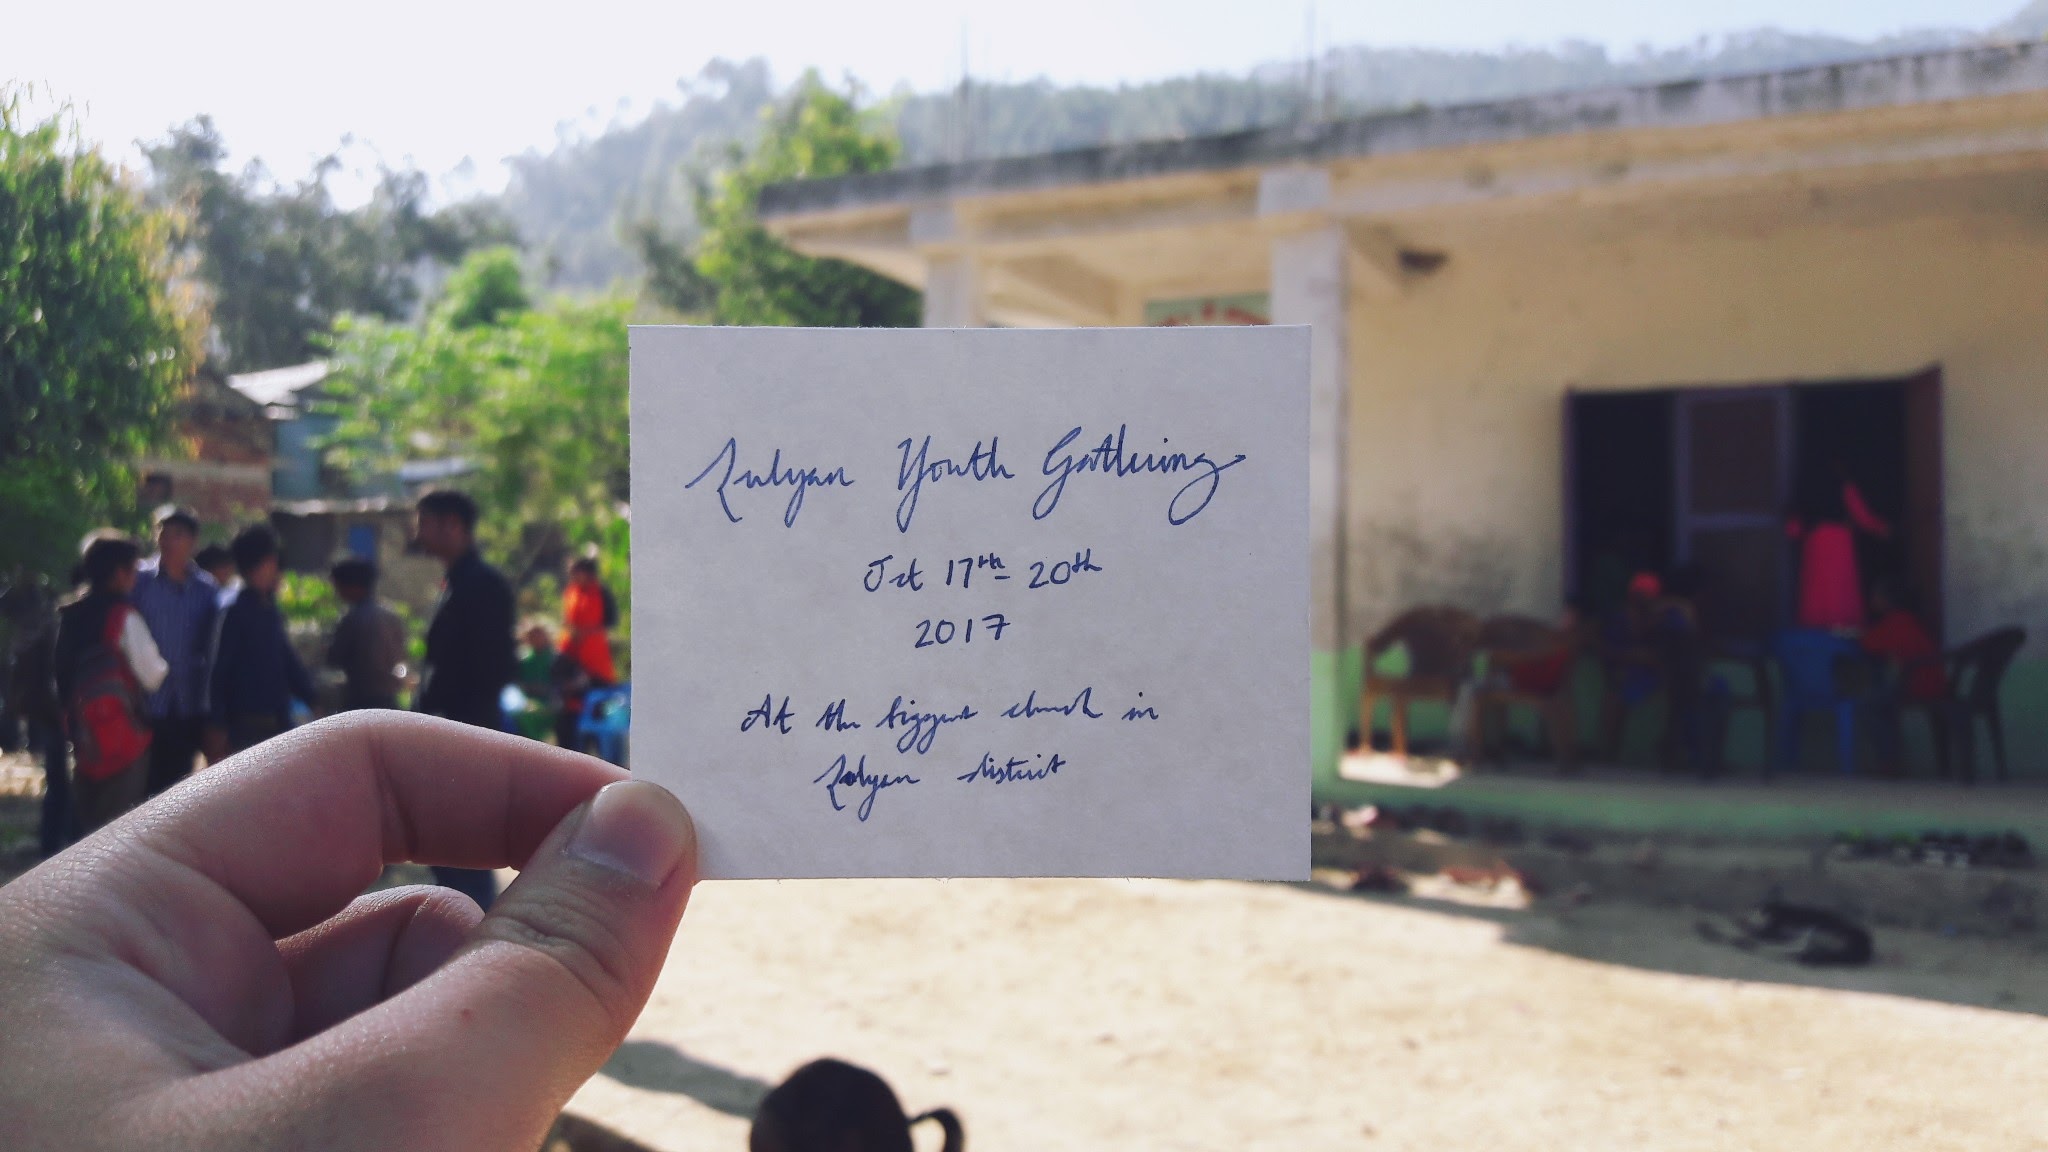 Salyan Youth Gathering
Oct 17th - 20th
2017
At the biggest church in
Salyan district